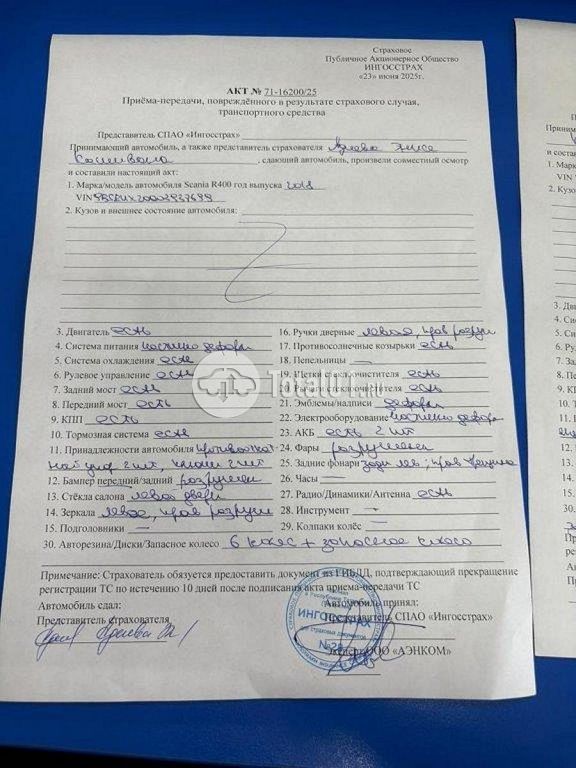 Страховое
Публичное Акционерное Общество
ИНГОССТРАХ
«23» июня 2025г.
АКТ № 71-16200/25
Приёма-передачи, повреждённого в результате страхового случая,
транспортного средства
Представитель СПАО «Ингосстрах»
Принимающий автомобиль, а также представитель страхователя
, сдающий автомобиль, произвели совместный осмотр
и составили настоящий акт:
1. Марка/модель автомобиля Scania R400 год выпуска 2018
VIN
2. Кузов и внешнее состояние автомобиля:
3. Двигатель есть
4. Система питания частично деформ
5. Система охлаждения есть
6. Рулевое управление есть
7. Задний мост есть
8. Передний мост есть
9. КПП есть
10. Тормозная система есть
11. Принадлежности автомобиля противооткат-
2 шт, 2 шт
12. Бампер передний/задний разрушен
13. Стёкла салона левая двери
14. Зеркала левое, прав разруш
15. Подголовники —
16. Ручки дверные левая, прав разруш
17. Противосолнечные козырьки есть
18. Пепельницы —
19. Щетки стеклоочистителя есть
20. Рычаги стеклоочистителя есть
21. Эмблемы/надписи деформ
22. Электрооборудование частично деформ
23. АКБ есть 2 шт
24. Фары разрушены
25. Задние фонари задн лев, прав трещина
26. Часы —
27. Радио/Динамики/Антенна есть
28. Инструмент —
29. Колпаки колёс —
30. Авторезина/Диски/Запасное колесо 6 колес + запасное колесо
Примечание: Страхователь обязуется предоставить документ из ГИБДД, подтверждающий прекращение
регистрации ТС по истечению 10 дней после подписания акта приема-передачи ТС
Автомобиль сдал:
Представитель страхователя
Автомобиль принял:
Представитель СПАО «Ингосстрах»
Эксперт ООО «АЭНКОМ»
ИНГОССТРАХ
для страховых документов